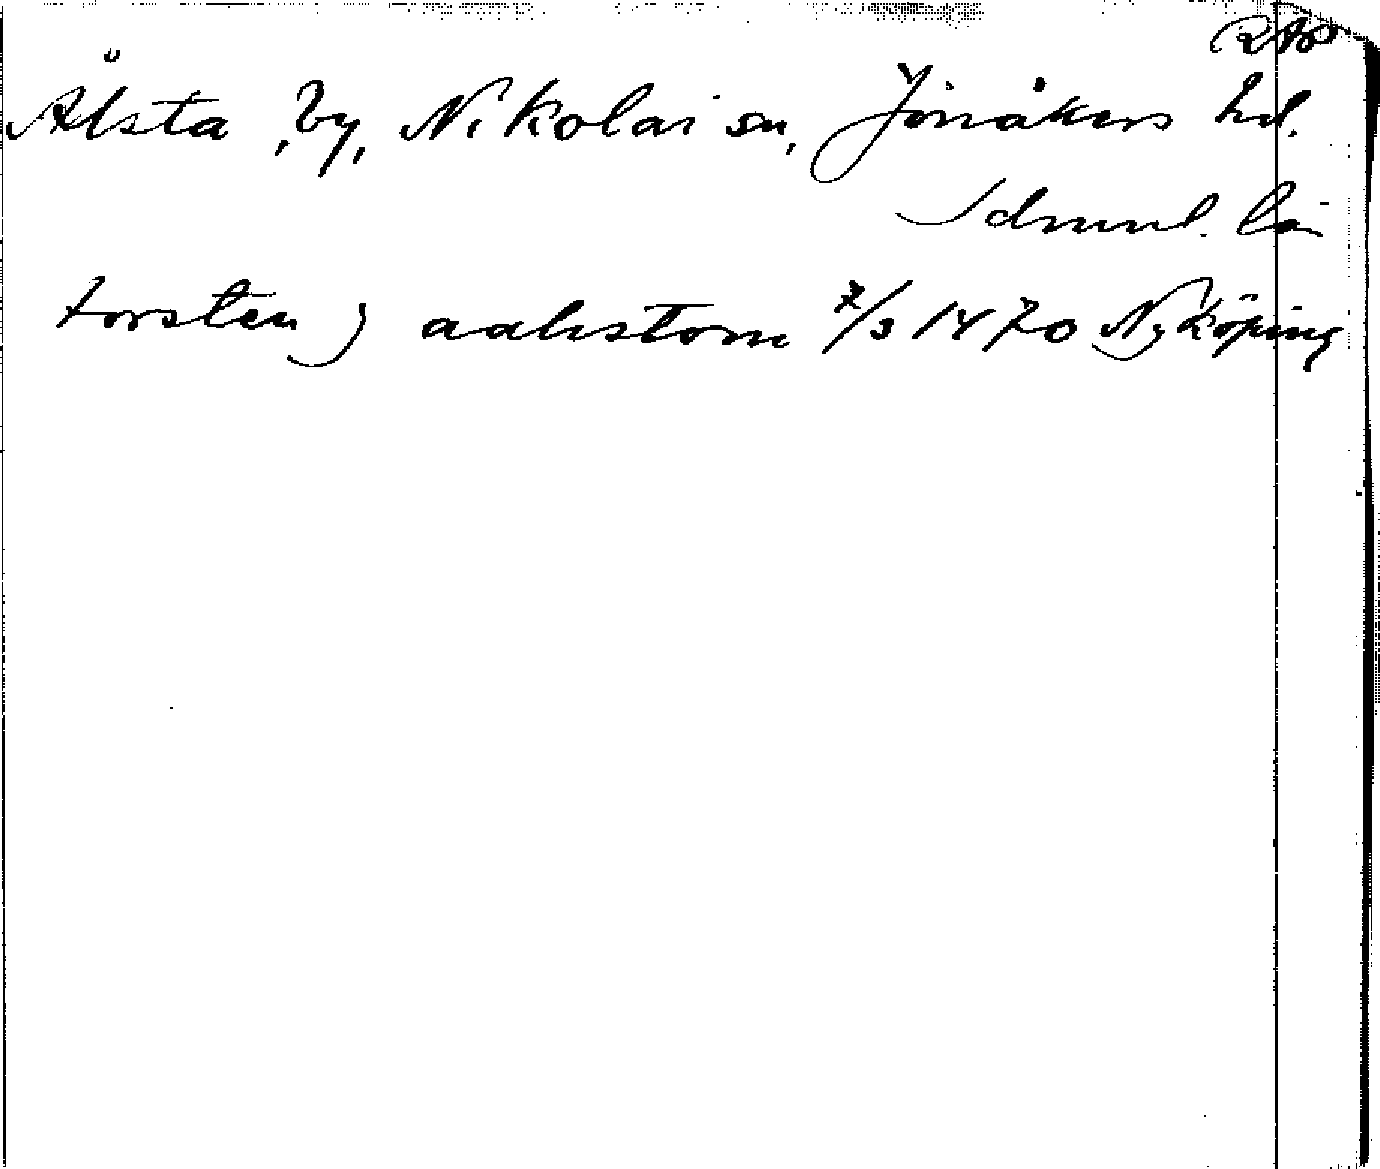 RAP
Ålsta, by, Nikolai sn, Jönåkers hd.
Södermnl. län
torsten J aalистom 7/3 1470 Nyköping